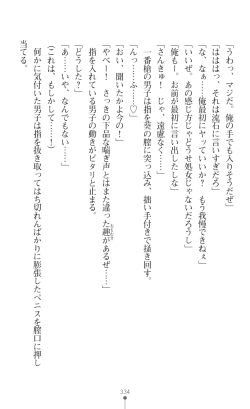 「うわっ、マジだ。俺の手でも入りそうだぜ」
「ははは。それは流石に言いすぎだろ」
「な、なぁ……俺最初にヤッていいか？　もう我慢できねぇ」
「いいぜ。あの感じ方じゃどうせ処女じゃないだろうし」
「俺も。お前が最初に言い出したしな」
「さんきゅ！　じゃ、遠慮なく……」
　一番槍の男子は指を葵の膣に突っ込み、拙い手付きで掻き回す。
「んっ……ふ……♡」
「おい、聞いたかよ今の！」
「やべー！　さっきの下品な喘ぎ声とはまた違った趣があるぜ……」
　指を入れている男子の動きがピタリと止まる。
「どうした？」
「あ……いや、なんでもない……」
（これは、もしかして……！）
　何かに気付いた男子は指を抜き取ってはち切れんばかりに膨張したペニスを膣口に押し
当てる。
334